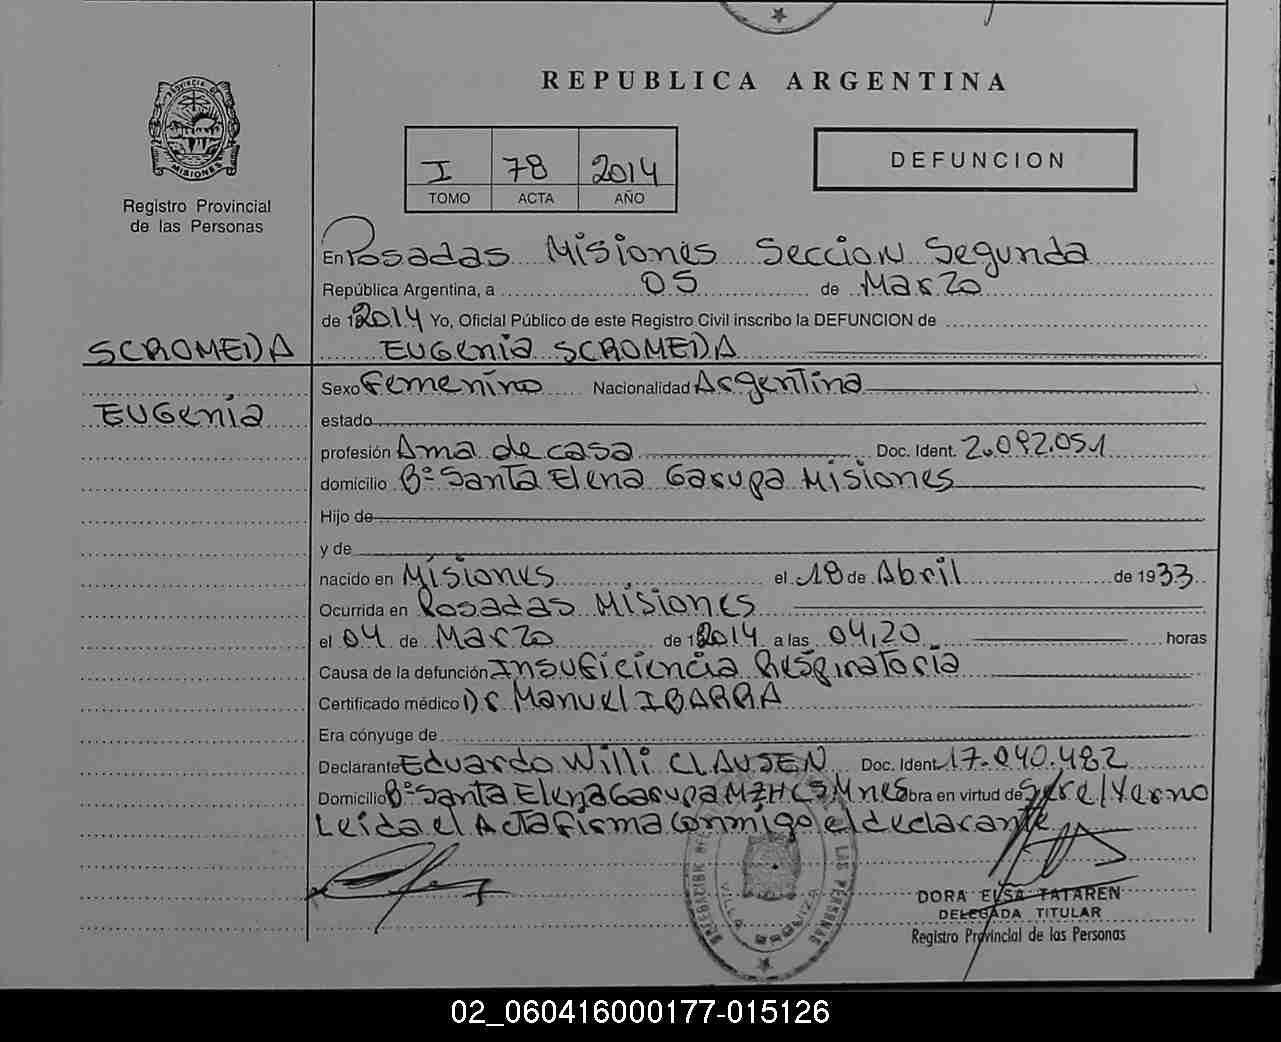 REPUBLICA ARGENTINA
PROVINCIA DE
MISIONES
Registro Provincial
de las Personas
I 78 2014
TOMO ACTA AÑO
DEFUNCION
En Posadas Misiones Seccion Segunda
República Argentina, a 05 de Marzo
de 2014 Yo, Oficial Público de este Registro Civil inscribo la DEFUNCION de
SCROMEDA
EUGenia SCROMEDA
Sexo Femenino Nacionalidad Argentina
EUGenia
estado
profesión Ama de casa Doc. Ident. 2.092.051
domicilio Bº Santa Elena Garupa Misiones
Hijo de
y de
nacido en Misiones el 18 de Abril de 1933
Ocurrida en Posadas Misiones
el 04 de Marzo de 2014 a las 04,20 horas
Causa de la defunción Insuficiencia Respiratoria
Certificado médico Dr Manuel IBARRA
Era cónyuge de
Declarante Eduardo Willi CLAUSEN Doc. Ident. 17.040.482
Domicilio Bº Santa Elena Garupa MZHCS Mnes Obra en virtud de Ser el Yerno
Leida el Acta firma conmigo el declarante
DORA ELSA TATAREN
DELEGADA TITULAR
Registro Provincial de las Personas
02_060416000177-015126